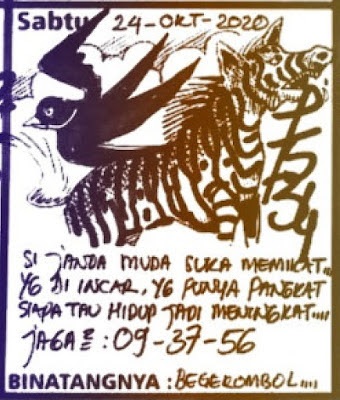 Sabtu 24-OKT-2020
SI JANDA MUDA SUKA MEMIKAT...
YG DI INCAR, YG PUNYA PANGKAT
SIAPA TAU HIDUP JADI MENINGKAT....
JAGA2 : 09-37-56
BINATANGNYA : BEGEROMBOL....